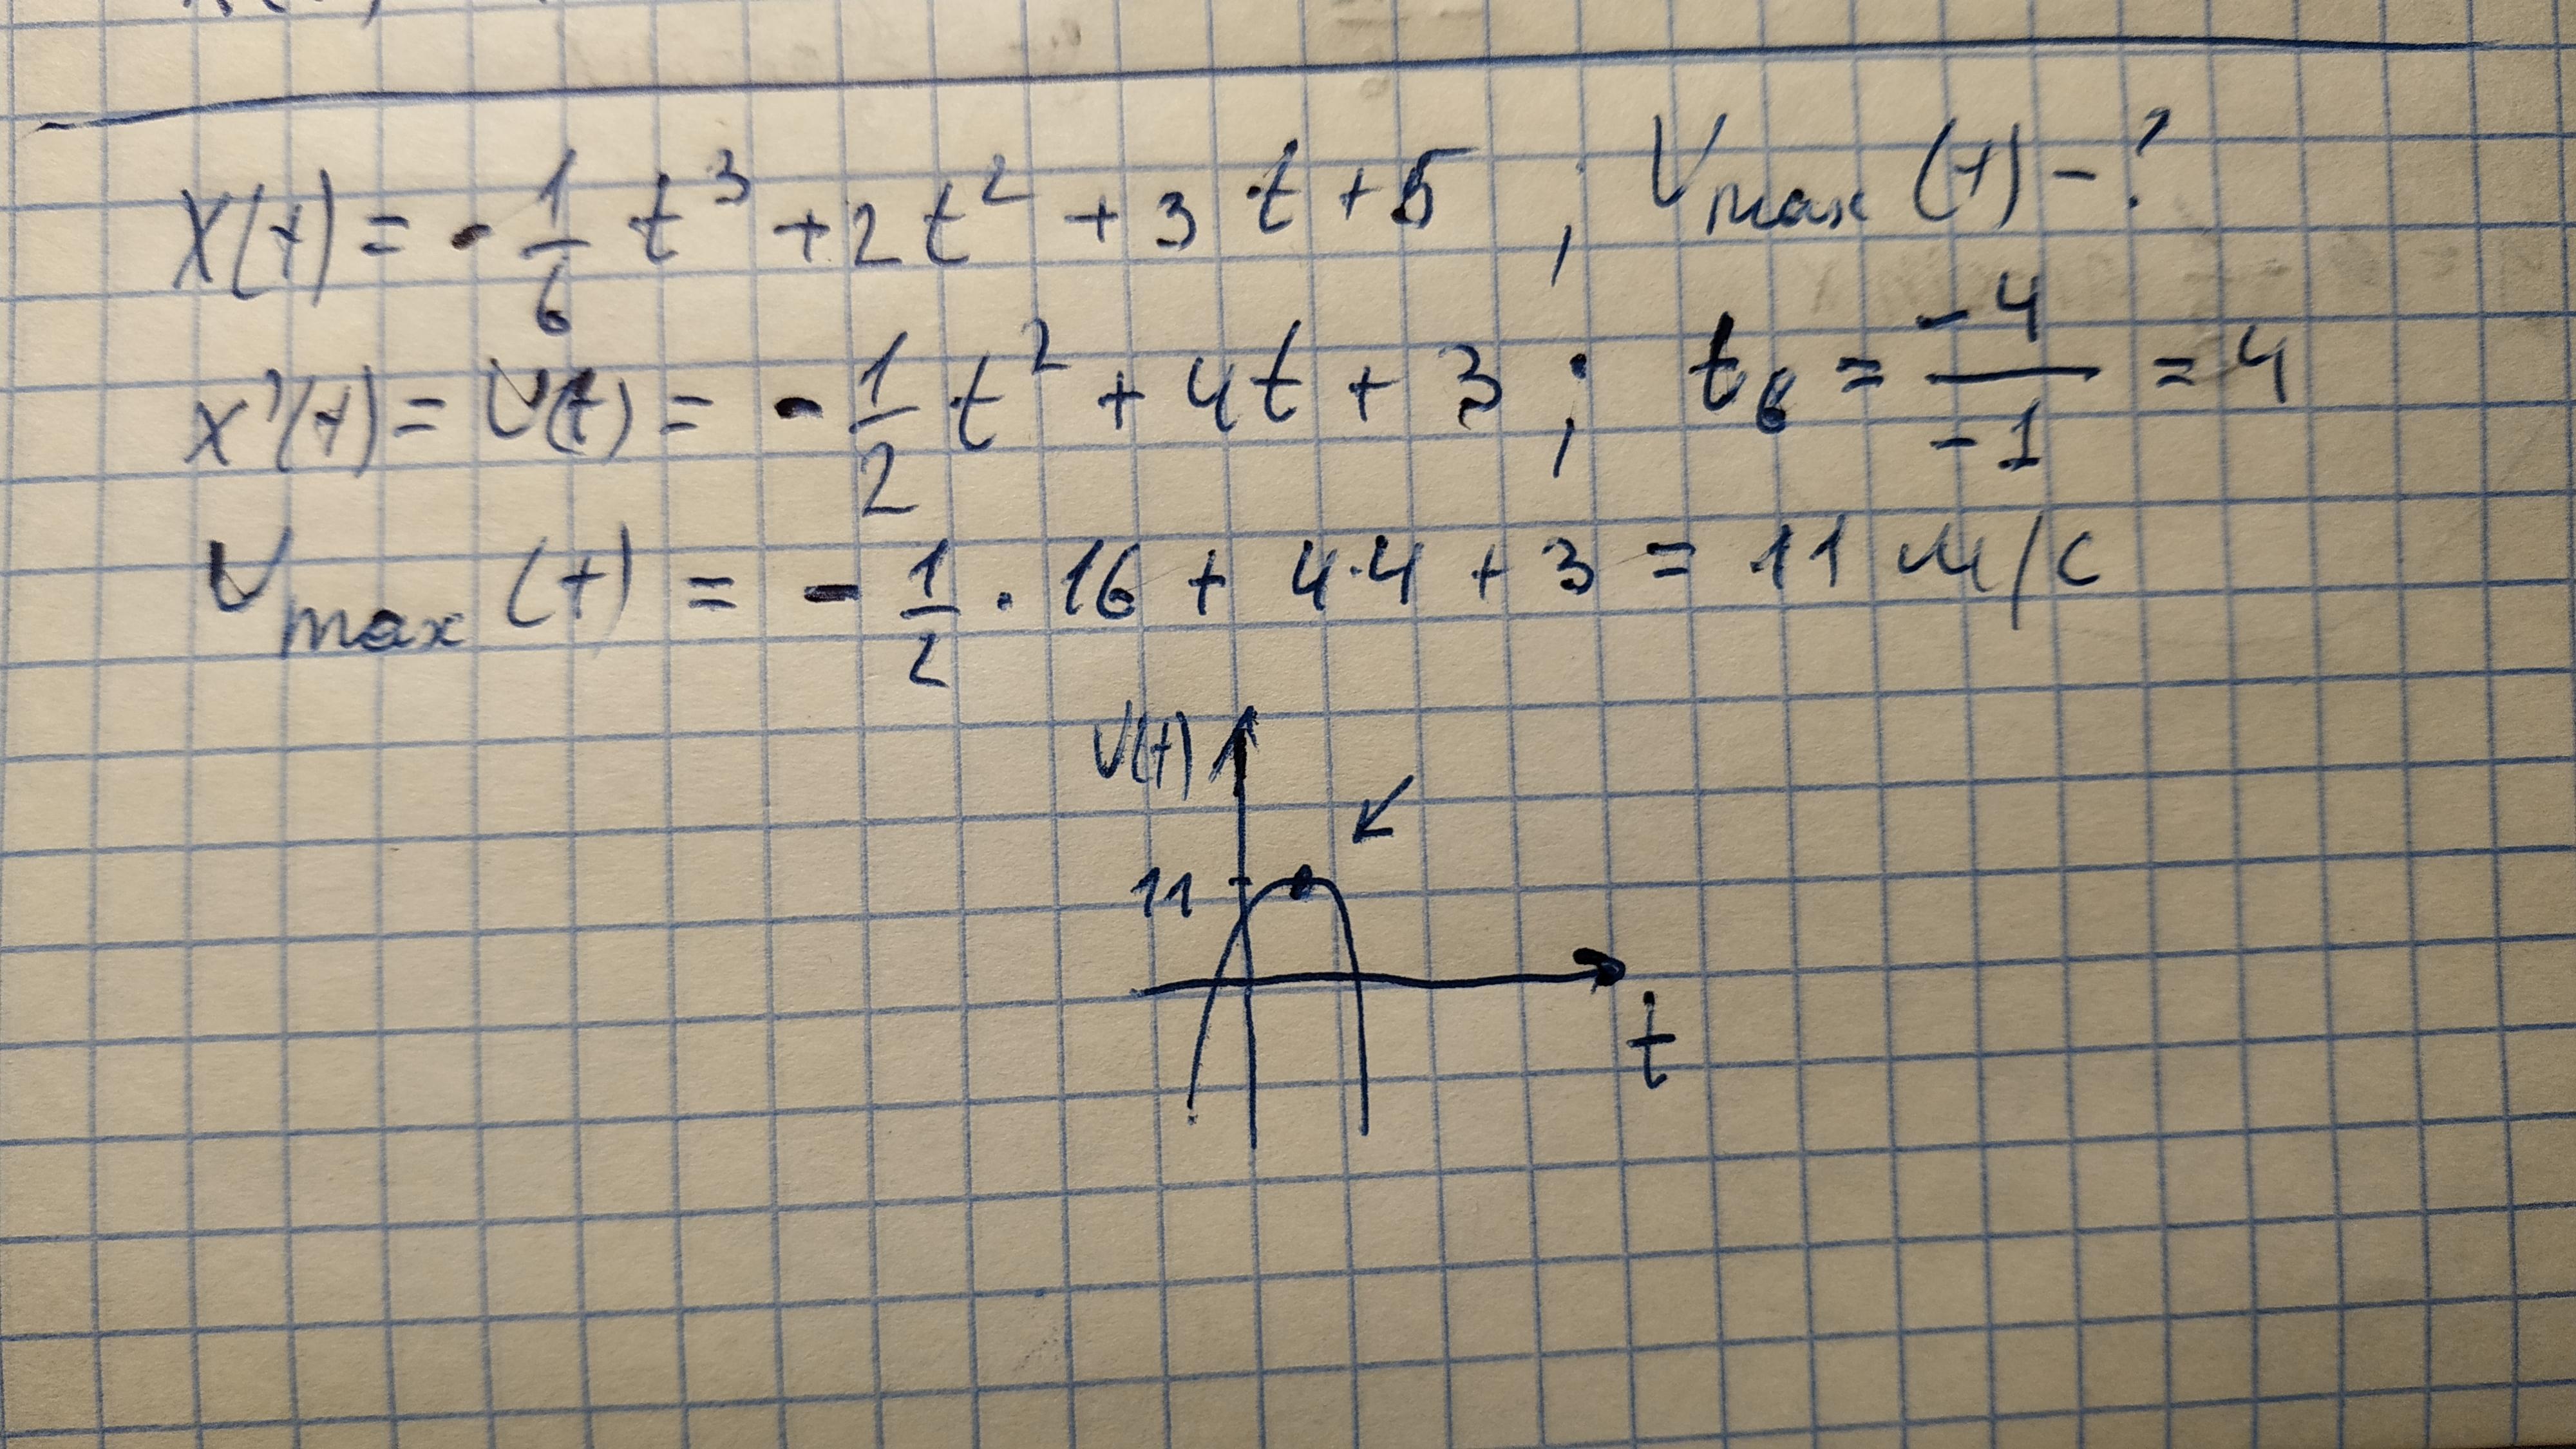 X(t) = - 1/6 t³ + 2t² + 3t + 5 ; Vmax (t) - ?
x'(t) = V(t) = - 1/2 t² + 4t + 3 ; tв = -4/-1 = 4
Vmax (t) = - 1/2 · 16 + 4·4 + 3 = 11 м/с
V(t)
11
t